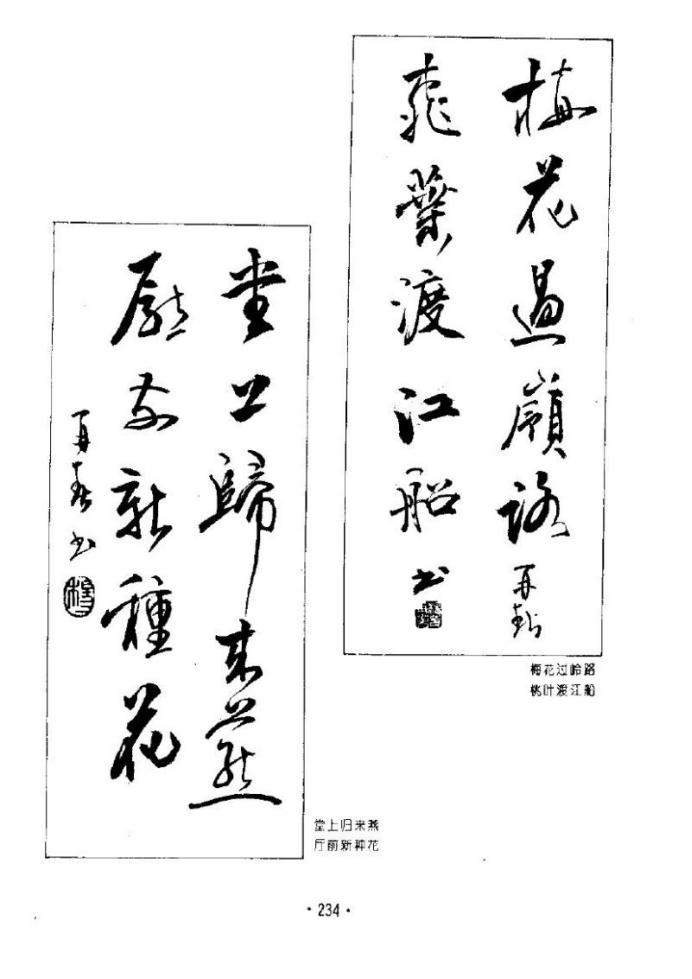 梅花過嶺路
桃葉渡江船
再新
书
梅花过岭路
桃叶渡江船
堂上歸來燕
廳前新種花
书
堂上归来燕
厅前新种花
·234·